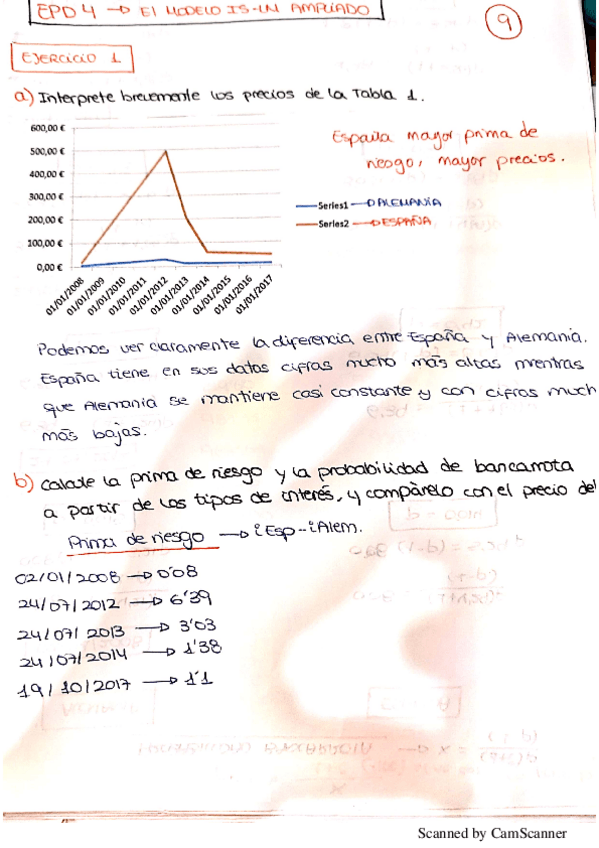 EPD 4 → El MODELO IS-LM AMPLIADO
9
EJERCICIO 1
a) Interprete brevemente los precios de la Tabla 1.
600,00 €
500,00 €
400,00 €
300,00 €
200,00 €
100,00 €
0,00 €
01/01/2008
01/01/2009
01/01/2010
01/01/2011
01/01/2012
01/01/2013
01/01/2014
01/01/2015
01/01/2016
01/01/2017
España mayor prima de
riesgo, mayor precios.
Series1 → ALEMANIA
Series2 → ESPAÑA
Podemos ver claramente la diferencia entre España y Alemania.
España tiene en sus datos cifras mucho más altas mientras
que Alemania se mantiene casi constante y con cifras much
más bajas.
b) Calcule la prima de riesgo y la probabilidad de bancarrota
a partir de los tipos de interés, y compárelo con el precio del
Prima de riesgo → iEsp - iAlem.
02/01/2008 → 0'08
24/07/2012 → 6'39
24/07/2013 → 3'03
24/07/2014 → 1'38
19/10/2017 → 1'1
Scanned by CamScanner